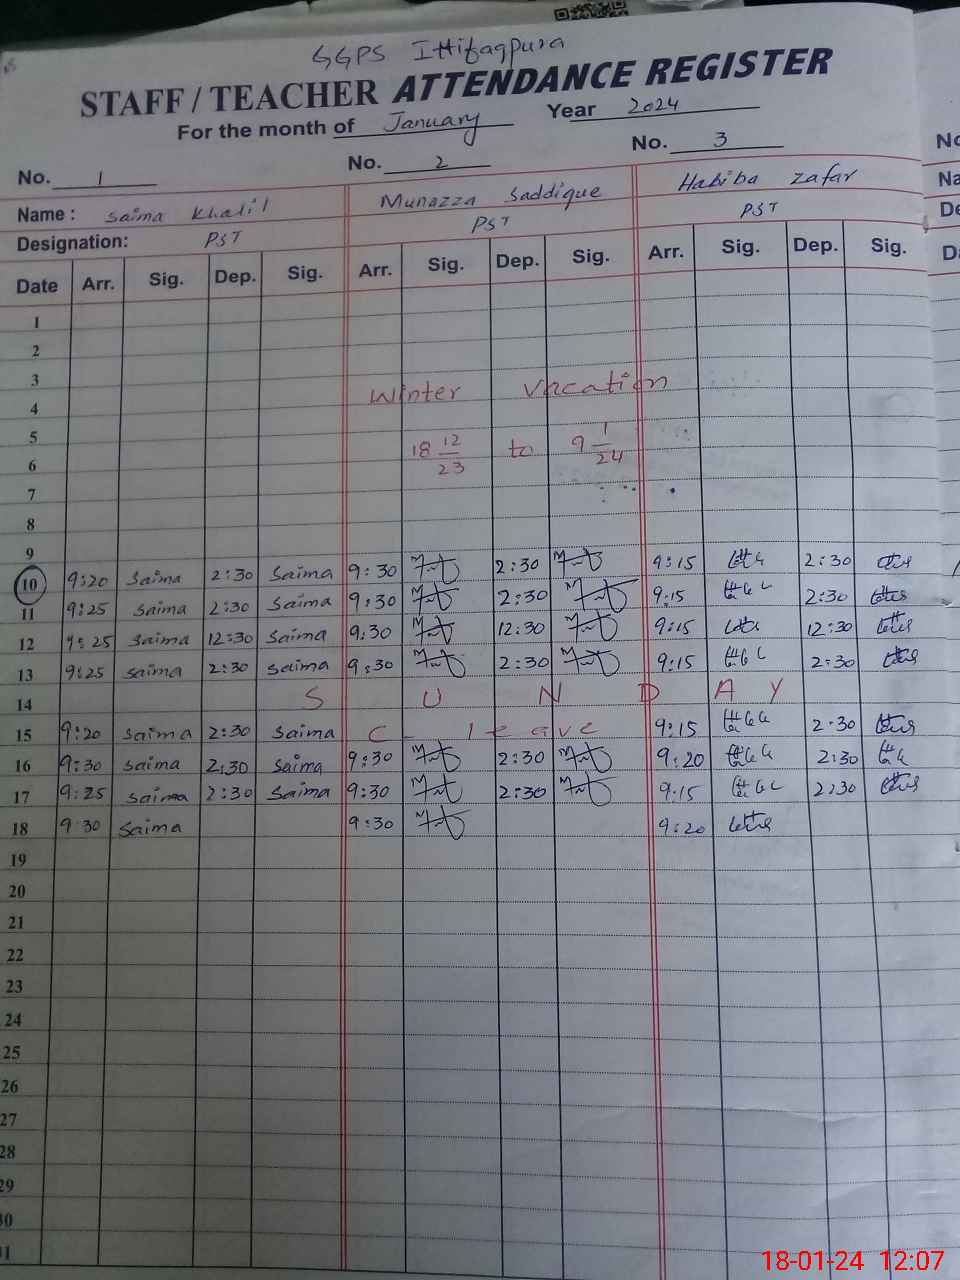 GGPS Ittifaqpura
STAFF / TEACHER ATTENDANCE REGISTER
For the month of January Year 2024
No. 1 No. 2 No. 3
Name : Saima Khalil Munazza Saddique Habiba Zafar
Designation: PST PST PST
Date Arr. Sig. Dep. Sig. Arr. Sig. Dep. Sig. Arr. Sig. Dep. Sig.
1
2
3
Winter Vacation
4
5
18 12/23 to 9 1/24
6
7
8
9
10 9:20 Saima 2:30 Saima 9:30 2:30 9:15 2:30
11 9:25 Saima 2:30 Saima 9:30 2:30 9:15 2:30
12 9:25 Saima 12:30 Saima 9:30 12:30 9:15 12:30
13 9:25 Saima 2:30 Saima 9:30 2:30 9:15 2:30
14 S U N D A Y
15 9:20 Saima 2:30 Saima C - leave 9:15 2:30
16 9:30 Saima 2:30 Saima 9:30 2:30 9:20 2:30
17 9:25 Saima 2:30 Saima 9:30 2:30 9:15 2:30
18 9:30 Saima 9:30 9:20
19
20
21
22
23
24
25
26
27
28
29
30
31
18-01-24 12:07